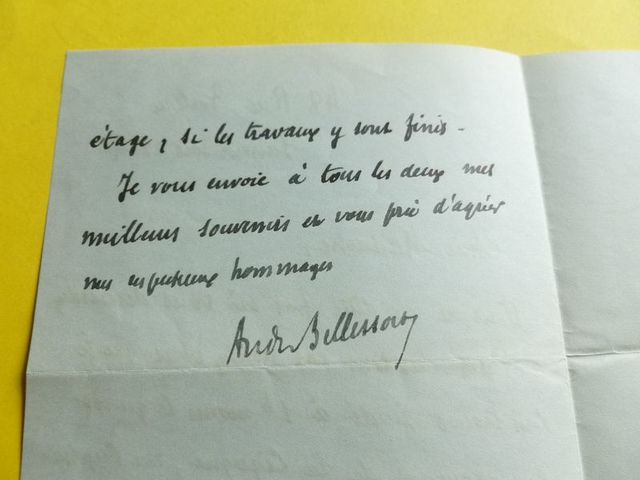 étage, si les travaux y sont finis -
Je vous envoie à tous les deux mes
meilleurs souvenirs et vous prie d'agréer
mes respectueux hommages
André Bellessort